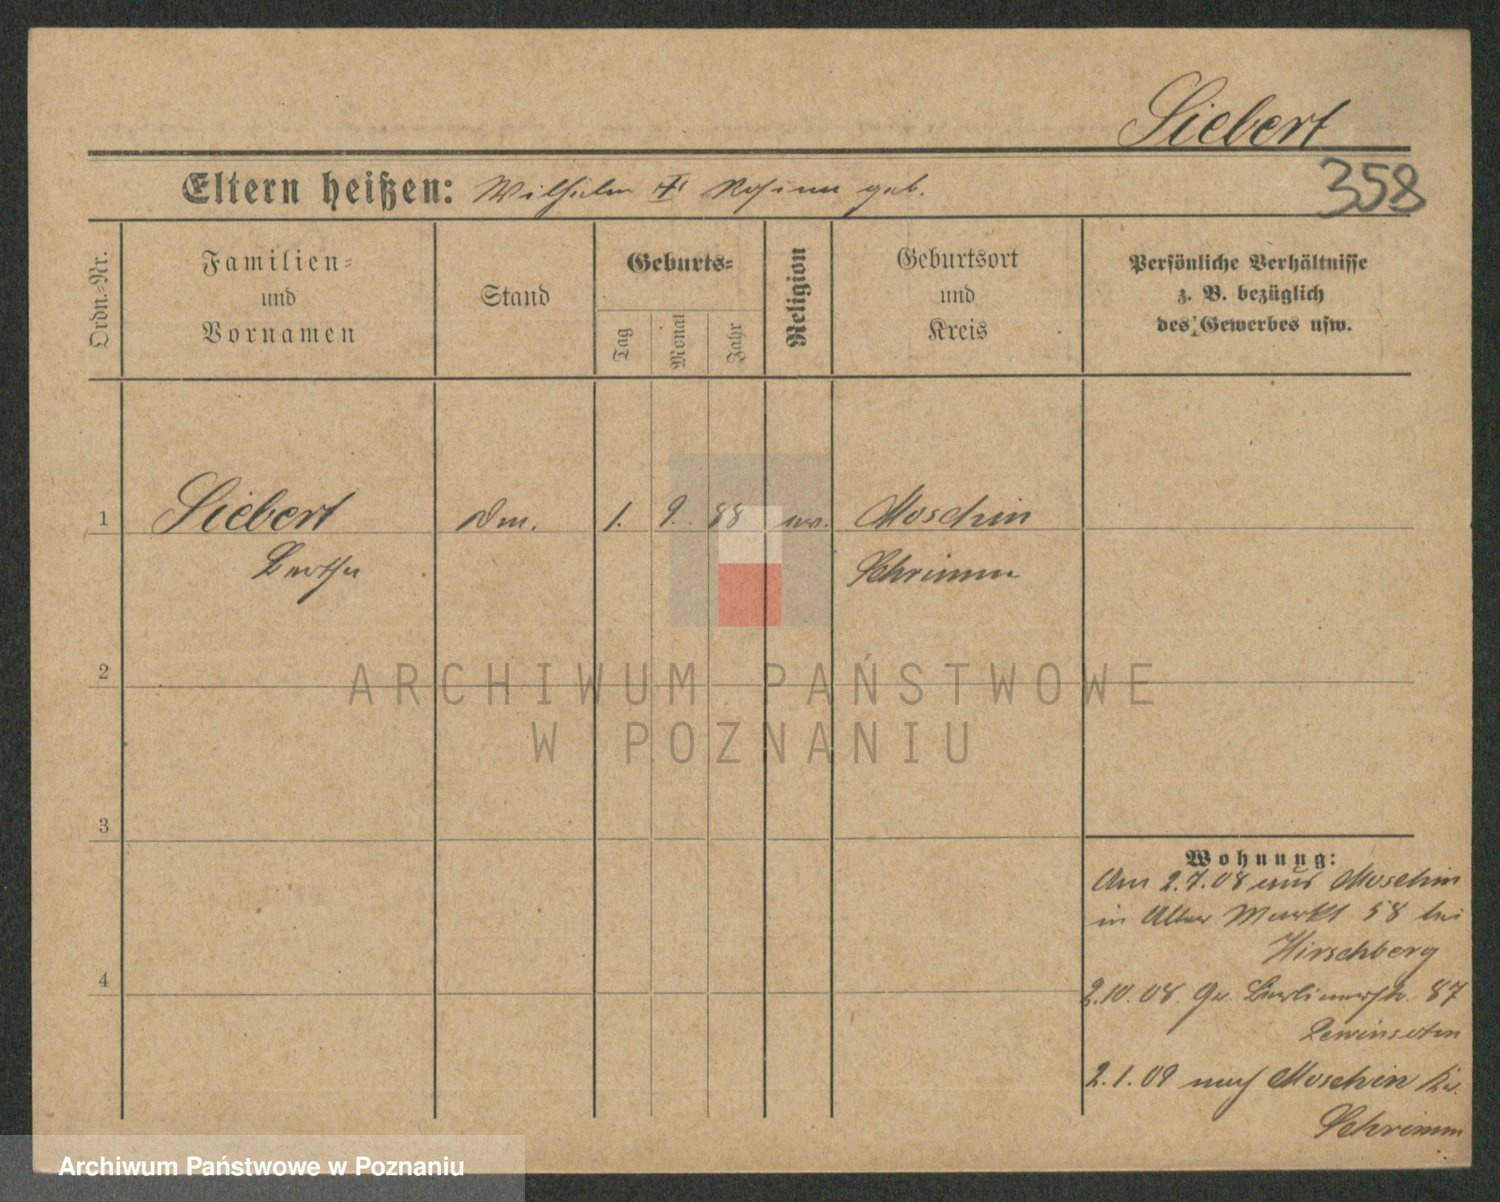 Siebert
358
Eltern heißen: Wilhelm geb.
Ordn.-Nr.
Familien-
und
Vornamen
Stand
Geburts-
Tag
Monat
Jahr
Religion
Geburtsort
und
Kreis
Persönliche Verhältnisse
z. B. bezüglich
des Gewerbes usw.
1 Siebert Dm. 1. 9. 88 ev. Moschin
Bertha Schrimm
2
ARCHIWUM PAŃSTWOWE
W POZNANIU
3
Wohnung:
Am 2.7.08 aus Moschin
in Alter Markt 58 bei
Hirschberg
4
2.10.08. Gr. Berlinerstr. 87
Lewinsohn
2.1.09 nach Moschin Kr.
Schrimm
Archiwum Państwowe w Poznaniu